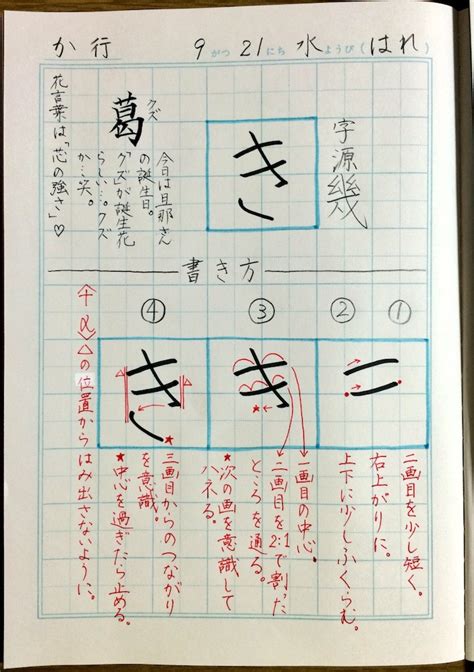 か行 9がつ21にち 水ようび(はれ)
字源 幾
き
葛 クズ
今日は旦那さん
の誕生日。
"クズ"が誕生花
らしい…。クズ
か…笑。
花言葉は「芯の強さ」♡
書き方
①
②
③
き
④
き
二画目を少し短く。
右上がりに。
上下に少しふくらむ。
一画目の中心。
二画目を2:1で割った
ところを通る。
★次の画を意識して
ハネる。
三画目からのつながり
を意識。
★中心を過ぎたら止める。
+α △の位置からはみ出さないように。